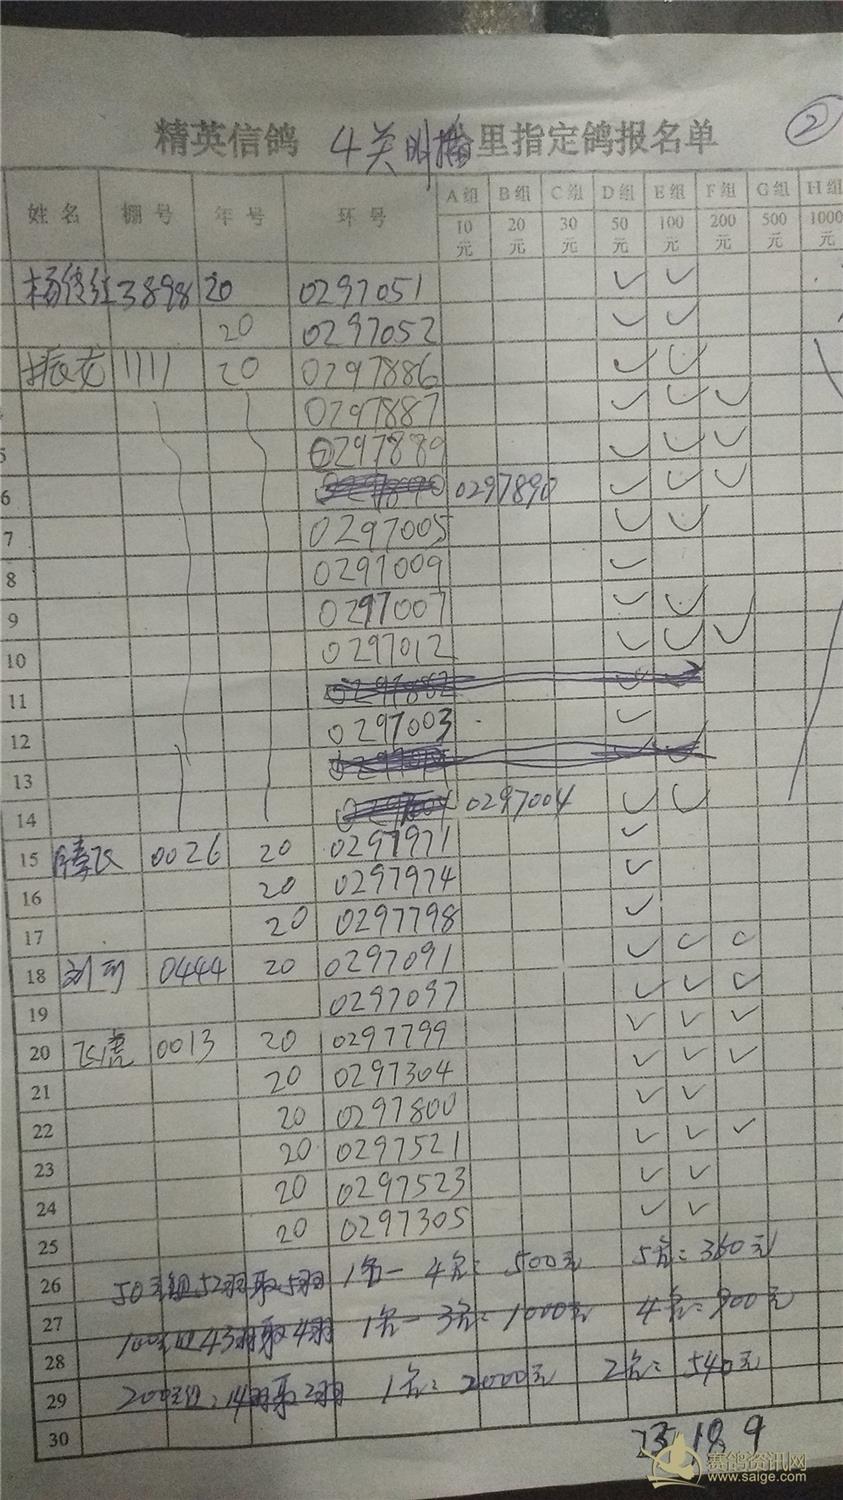 精英信鸽 4关 里指定鸽报名单 ②
姓名 棚号 年号 环号 A组 B组 C组 D组 E组 F组 G组 H组
10元 20元 30元 50元 100元 200元 500元 1000元
杨 3898 20 0297051 ✓ ✓
20 0297052 ✓ ✓
振龙 1111 20 0297886 ✓ ✓
0297887 ✓ ✓ ✓
5 0297889 ✓ ✓ ✓
6 0297890 ✓ ✓ ✓
7 0297005 ✓ ✓
8 0297009 ✓
9 0297007 ✓ ✓
10 0297012 ✓ ✓ ✓
11
12 0297003 ✓
13
14 0297004 ✓ ✓
15 腾飞 0026 20 0297971 ✓
16 20 0297974 ✓
17 20 0297798 ✓
18 刘 0444 20 0297091 ✓ ✓ ✓
19 0297097 ✓ ✓ ✓
20 飞虎 0013 20 0297799 ✓ ✓ ✓
21 20 0297304 ✓ ✓ ✓
22 20 0297800 ✓ ✓
23 20 0297521 ✓ ✓ ✓
24 20 0297523 ✓ ✓
25 20 0297305 ✓ ✓
26 50元组52羽取5羽 1名-4名=500元 5名=360元
27 100元组43羽取4羽 1名-3名=1000元 4名=900元
28
29 200元组:14羽取2羽 1名=2000元 2名=540元
30 23 18 9
赛鸽资讯网
www.saige.com